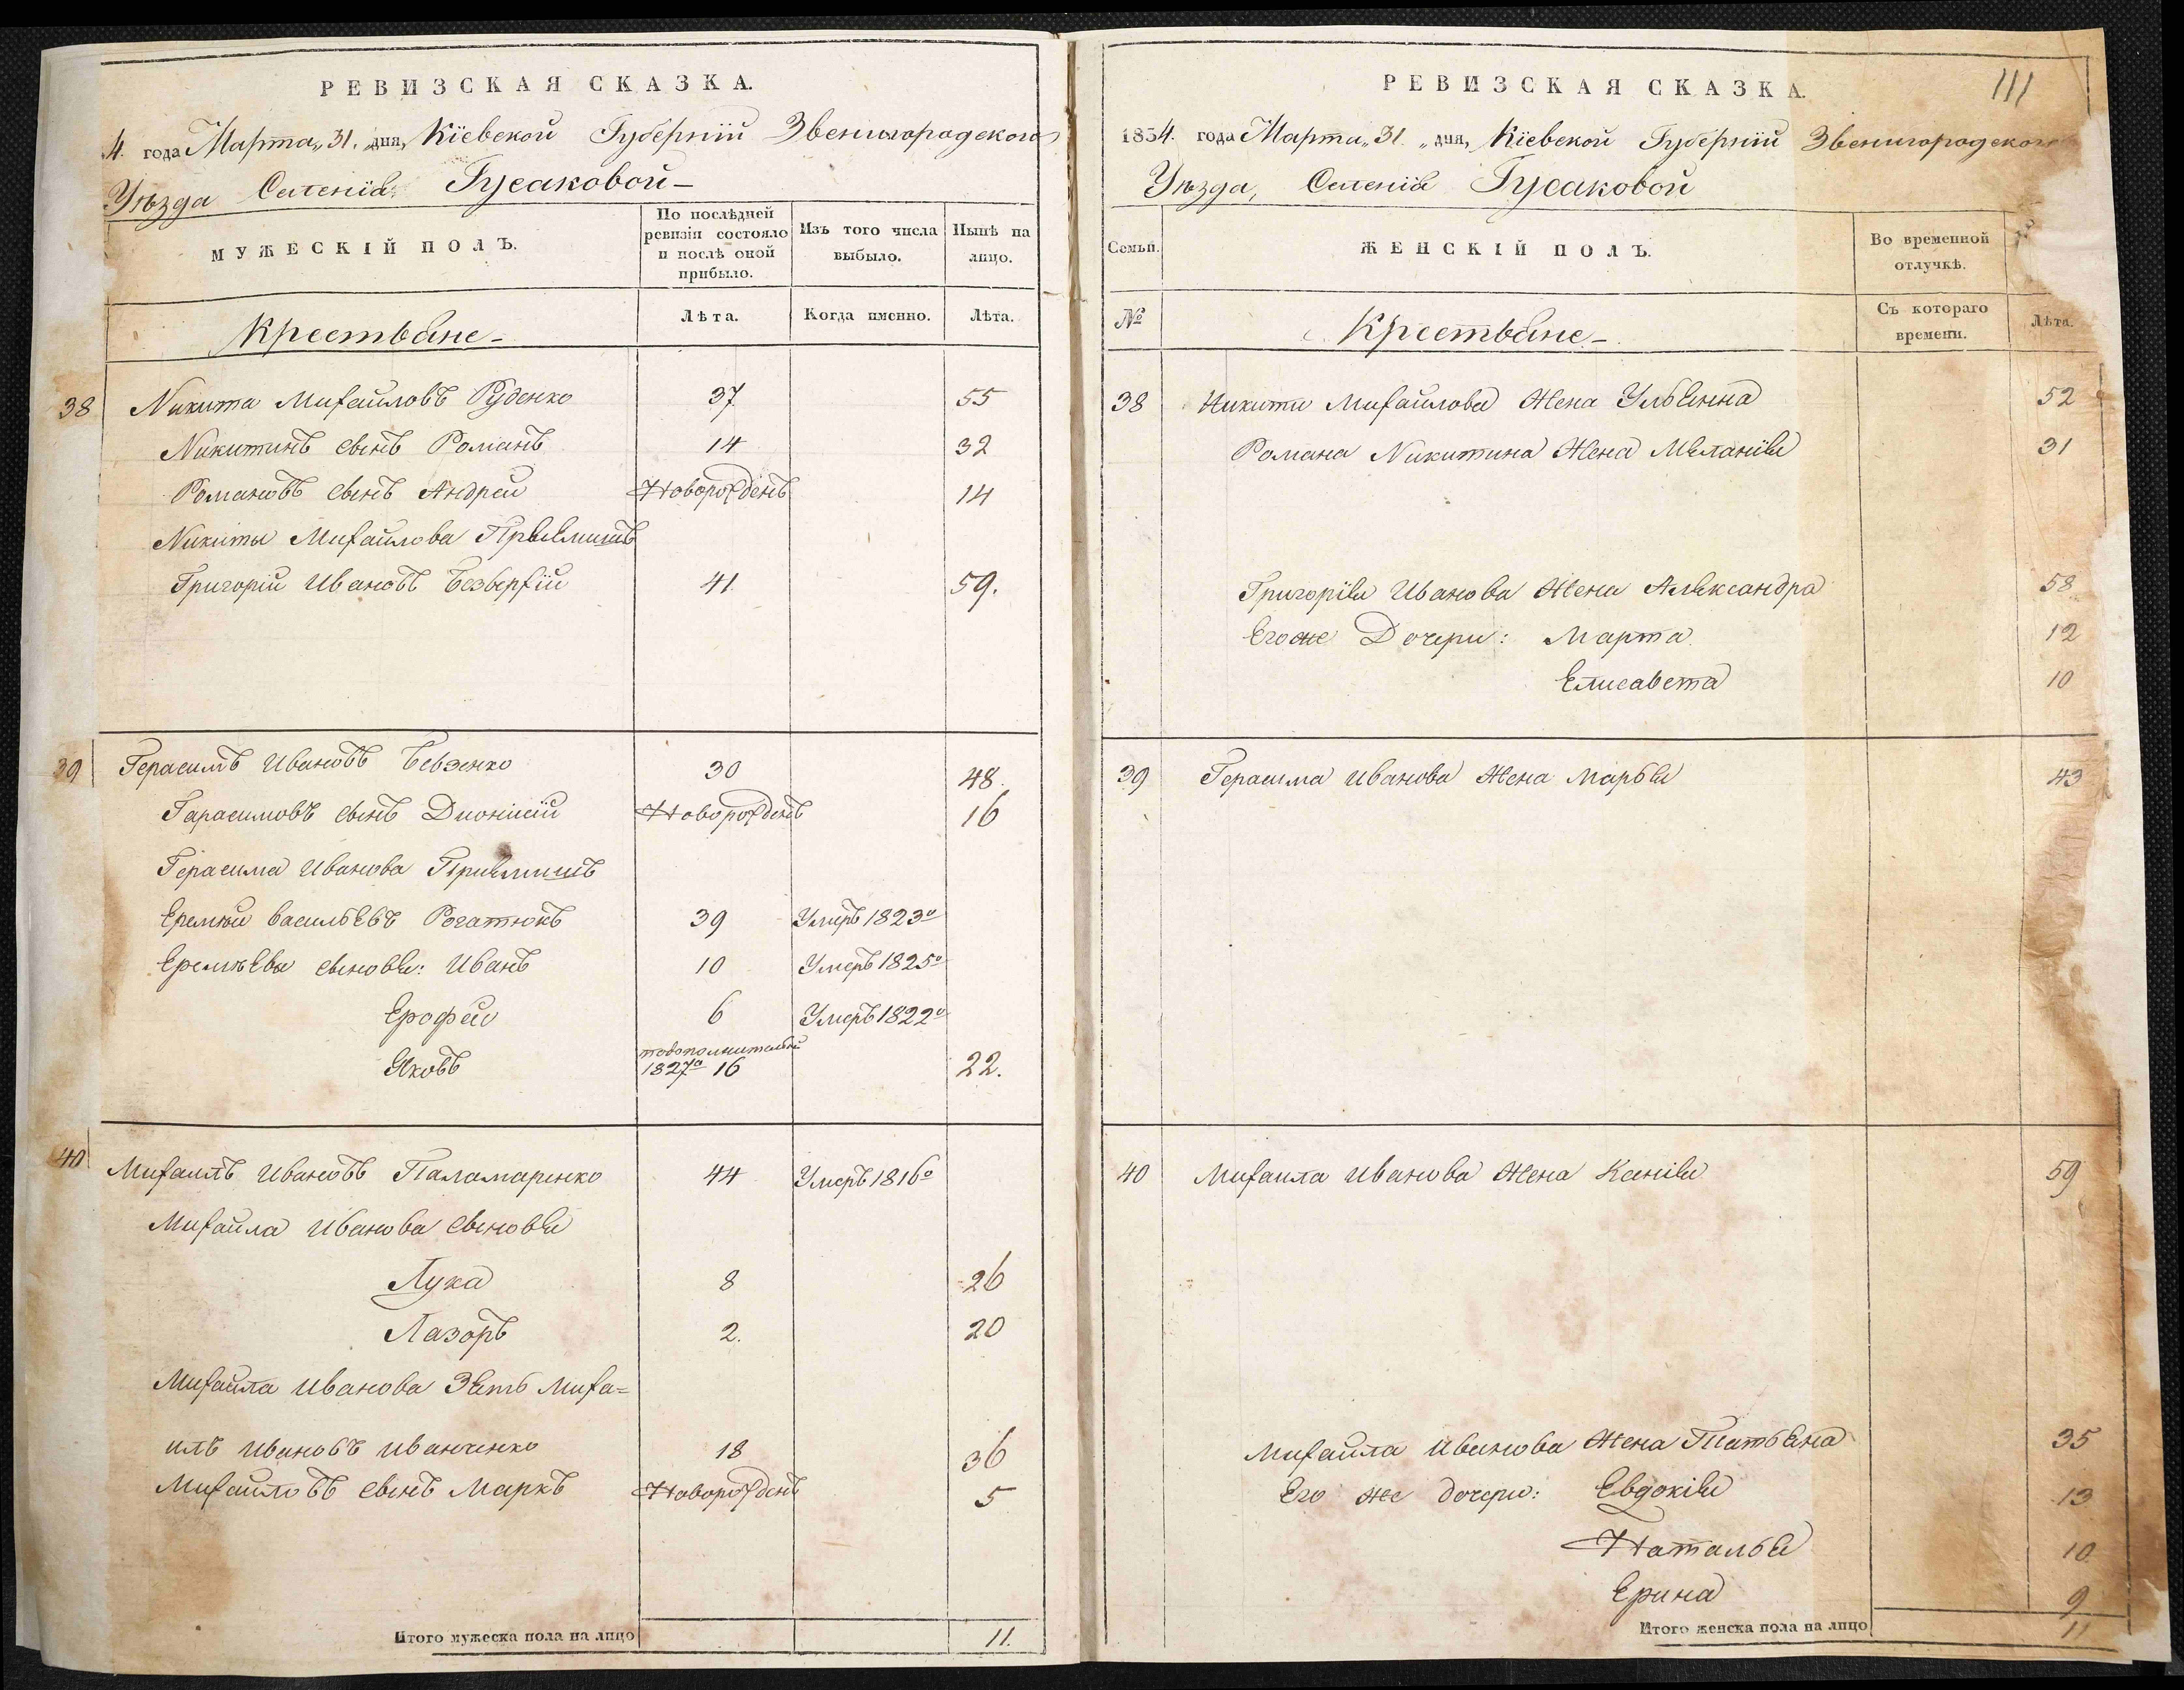 РЕВИЗСКАЯ СКАЗКА.
4. года Марта „31. „ дня, Кіевской Губерніи Звенигородского
Уѣзда Селенія Гусаковой –
МУЖЕСКІЙ ПОЛЪ.
По послѣдней ревизіи состояло и послѣ оной прибыло.
Изъ того числа выбыло.
Нынѣ на лицо.
Крестьяне –
Лѣта.
Когда именно.
Лѣта.
38 Никита Михайловъ Руденко 37 55
Никитинъ сынъ Романъ 14 32
Романовъ сынъ Андрей Новорожденъ 14
Никиты Михайлова Пріемышъ
Григорій Ивановъ Безверхій 41. 59.
39 Герасимъ Ивановъ Бевзенко 30 48.
Гарасимовъ сынъ Дионисій Новорожденъ 16
Герасима Иванова Пріемышъ
Еремѣй Васильевъ Рогатюкъ 39 Умеръ 1823º
Еремѣевы сыновья: Иванъ 10 Умеръ 1825º
Ерофей 6 Умеръ 1822º
Яковъ 1827º 16 22.
40 Михаилъ Ивановъ Паламаренко 44 Умеръ 1816º
Михайла Иванова сыновья
Лука 8 26
Лазоръ 2. 20
Михайла Иванова Зять Миха=
илъ Ивановъ Иванченко 18 36
Михайловъ сынъ Маркъ Новорожденъ 5
Итого мужеска пола на лицо 11.
111
РЕВИЗСКАЯ СКАЗКА.
1834. года Марта „31. „ дня, Кіевской Губерніи Звенигородского
Уѣзда, Селенія Гусаковой
Семьи.
ЖЕНСКІЙ ПОЛЪ.
Во временной отлучкѣ.
№
Крестьяне –
Съ котораго времени.
Лѣта.
38 Никиты Михайлова Жена Ульянна 52
Романа Никитина Жена Меланія 31
Григорія Иванова Жена Александра 58
Его же Дочери: Марта 12
Елисавета 10
39 Герасима Иванова Жена Марья 43
40 Михаила Иванова Жена Ксенія 59
Михайла Иванова Жена Татьяна 35
Его же дочери: Евдокія 13
Наталья 10
Ерина 9
Итого женска пола на лицо 11